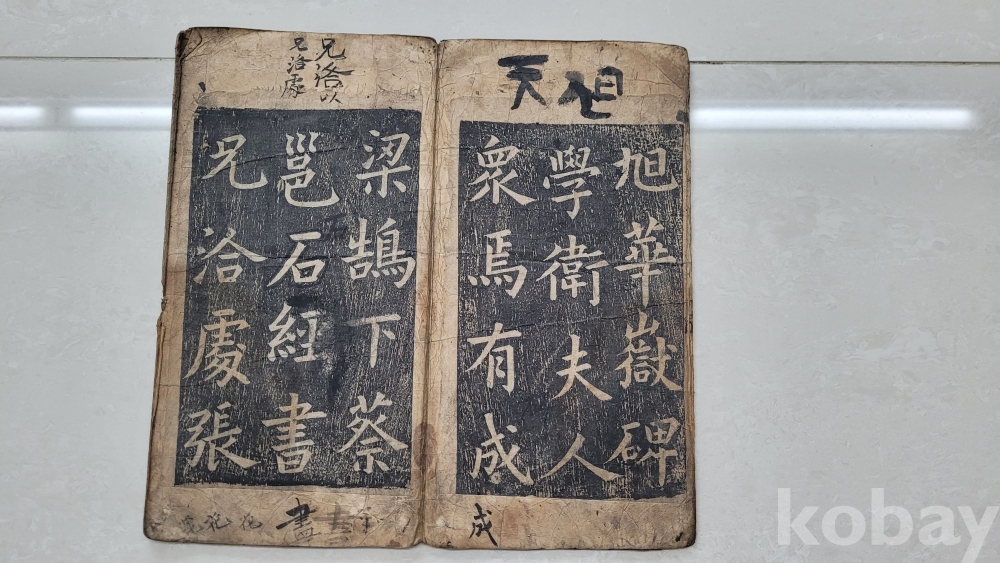 旭華嶽碑
學衛夫人
衆焉有成
天
成
梁鵠下蔡
邕石經書
兄洽處張
兄洛以
兄洛處